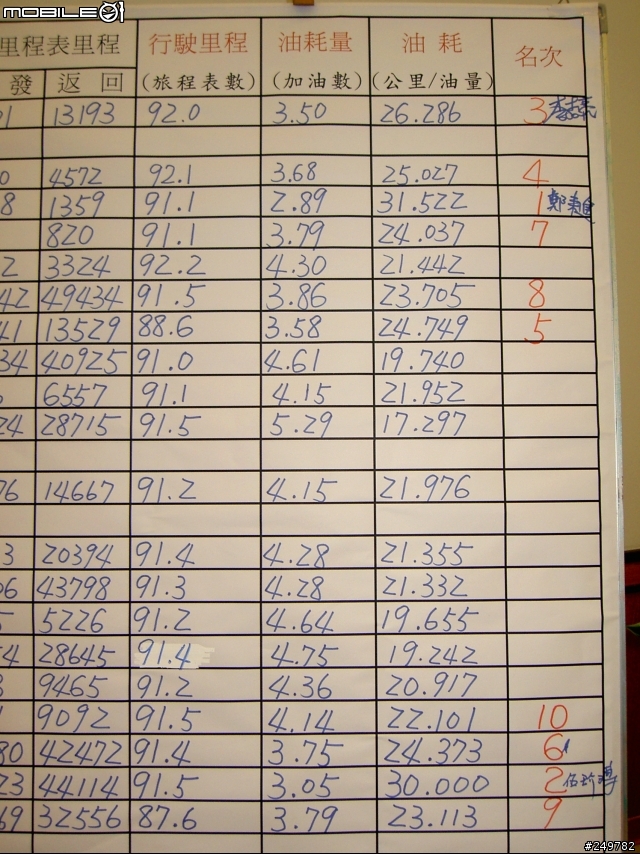 MOBILE01
里程表里程 行駛里程 油耗量 油 耗 名次
發 返 回 (旅程表數) (加油數) (公里/油量)
1 13193 92.0 3.50 26.286 3
0 4572 92.1 3.68 25.027 4
8 1359 91.1 2.89 31.522 1
820 91.1 3.79 24.037 7
2 3324 92.2 4.30 21.442
42 49434 91.5 3.86 23.705 8
41 13529 88.6 3.58 24.749 5
34 40925 91.0 4.61 19.740
6557 91.1 4.15 21.952
24 28715 91.5 5.29 17.297
76 14667 91.2 4.15 21.976
3 20394 91.4 4.28 21.355
06 43798 91.3 4.28 21.332
5226 91.2 4.64 19.655
4 28645 91.4 4.75 19.242
9465 91.2 4.36 20.917
9092 91.5 4.14 22.101 10
80 42472 91.4 3.75 24.373 6
23 44114 91.5 3.05 30.000 2
69 32556 87.6 3.79 23.113 9
#249782